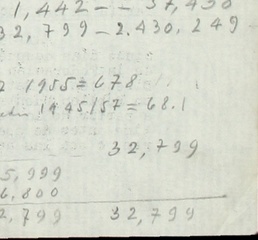 1,442 - - 37,430
32,799 - 2.430,249
2 1955 = 678
1445/57 = 68.1
32,799
5,999
6.800
2,799 32,799